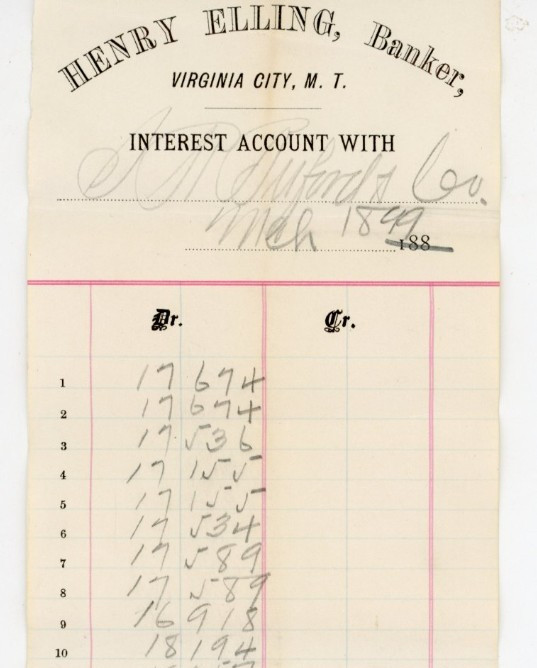 HENRY ELLING, Banker,
VIRGINIA CITY, M. T.
INTEREST ACCOUNT WITH
Co.
Mch 1899 188
Dr. Cr.
1 17 674
2 17 674
3 17 536
4 17 155
5 17 155
6 17 534
7 17 589
8 17 589
9 16 918
10 18 194